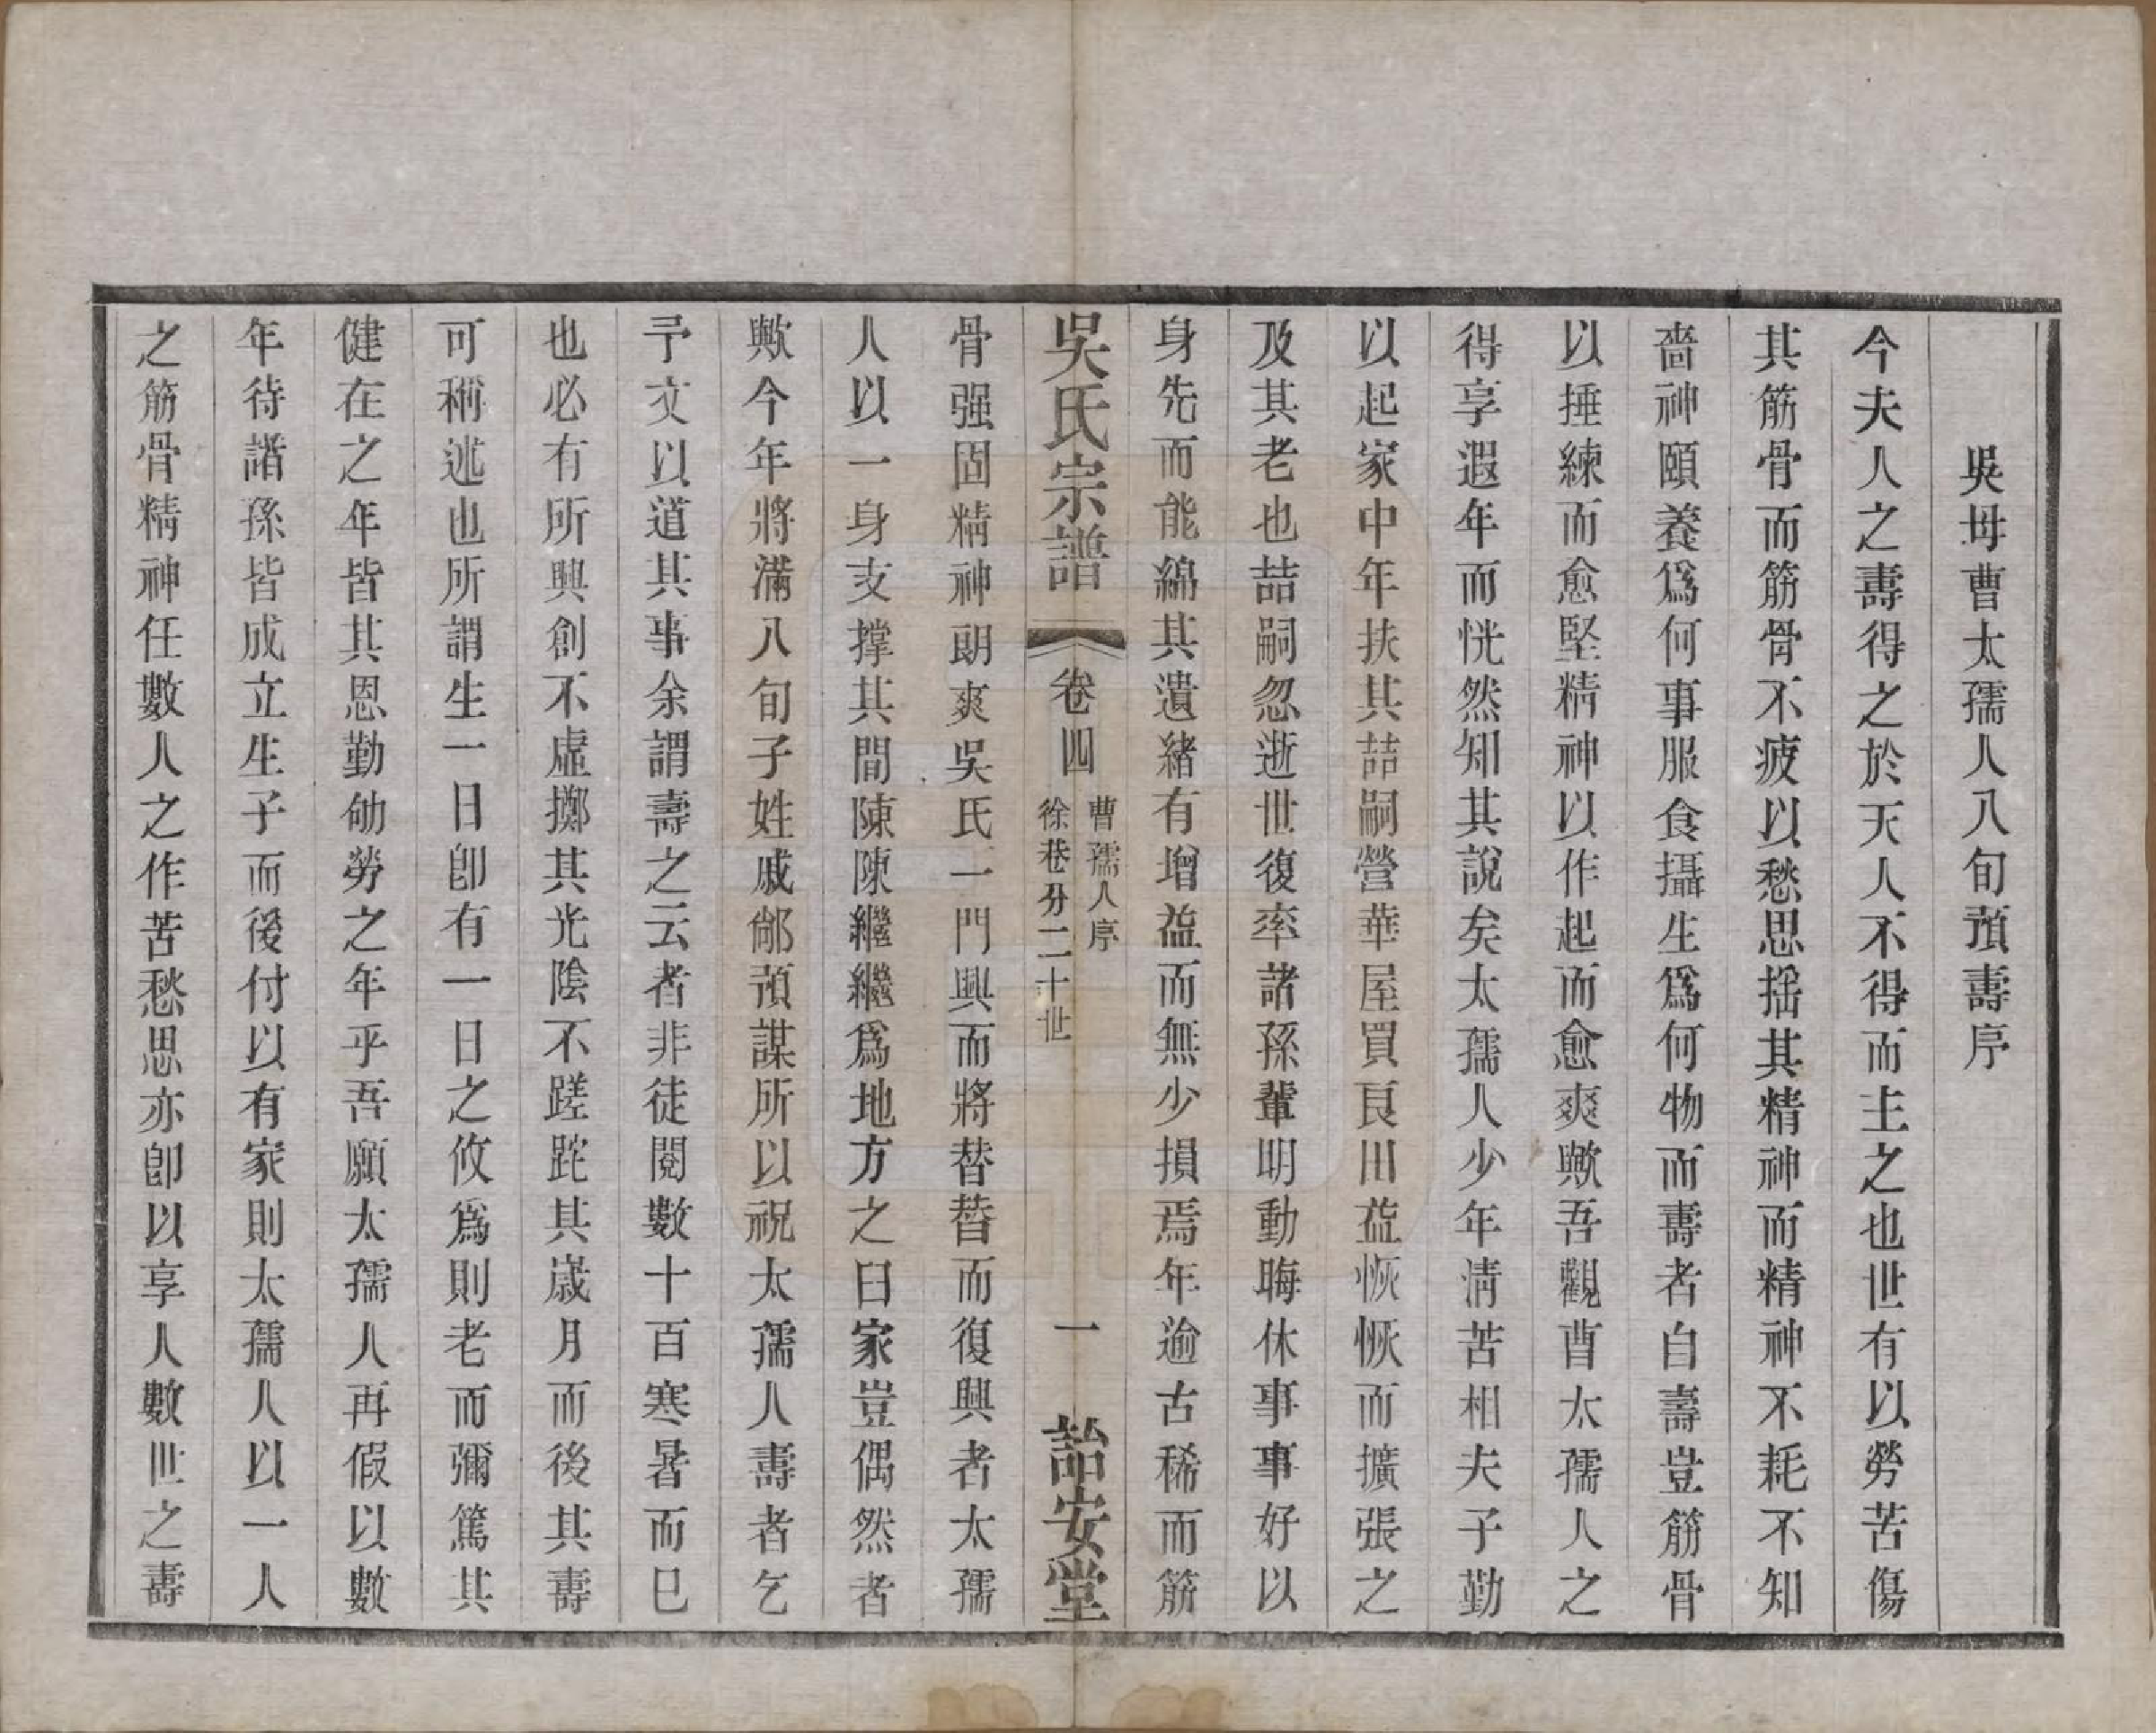 吳母曹太孺人八旬預壽序
今夫人之壽得之於天人不得而主之也世有以勞苦傷
其筋骨而筋骨不疲以愁思揺其精神而精神不耗不知
嗇神頤養爲何事服食攝生爲何物而壽者自壽豈筋骨
以捶練而愈堅精神以作起而愈爽歟吾觀曹太孺人之
得享遐年而恍然知其說矣太孺人少年清苦相夫子勤
以起家中年扶其喆嗣營華屋買良田益恢恢而擴張之
及其老也喆嗣忽逝世復率諸孫輩明動晦休事事好以
身先而能綿其遺緒有增益而無少損焉年逾古稀而筋
吳氏宗譜
卷四
曹孺人序
徐巷分二十世
一
詒安堂
骨强固精神朗爽吳氏一門興而將替替而復興者太孺
人以一身支撐其間陳陳繼繼爲地方之曰家豈偶然者
歟今年將滿八旬子姓戚鄰預謀所以祝太孺人壽者乞
予文以道其事余謂壽之云者非徒閱數十百寒暑而已
也必有所興創不虛擲其光陰不蹉跎其歲月而後其壽
可稱述也所謂生一日卽有一日之攸爲則老而彌篤其
健在之年皆其恩勤劬勞之年乎吾願太孺人再假以數
年待諸孫皆成立生子而後付以有家則太孺人以一人
之筋骨精神任數人之作苦愁思亦卽以享人數世之壽